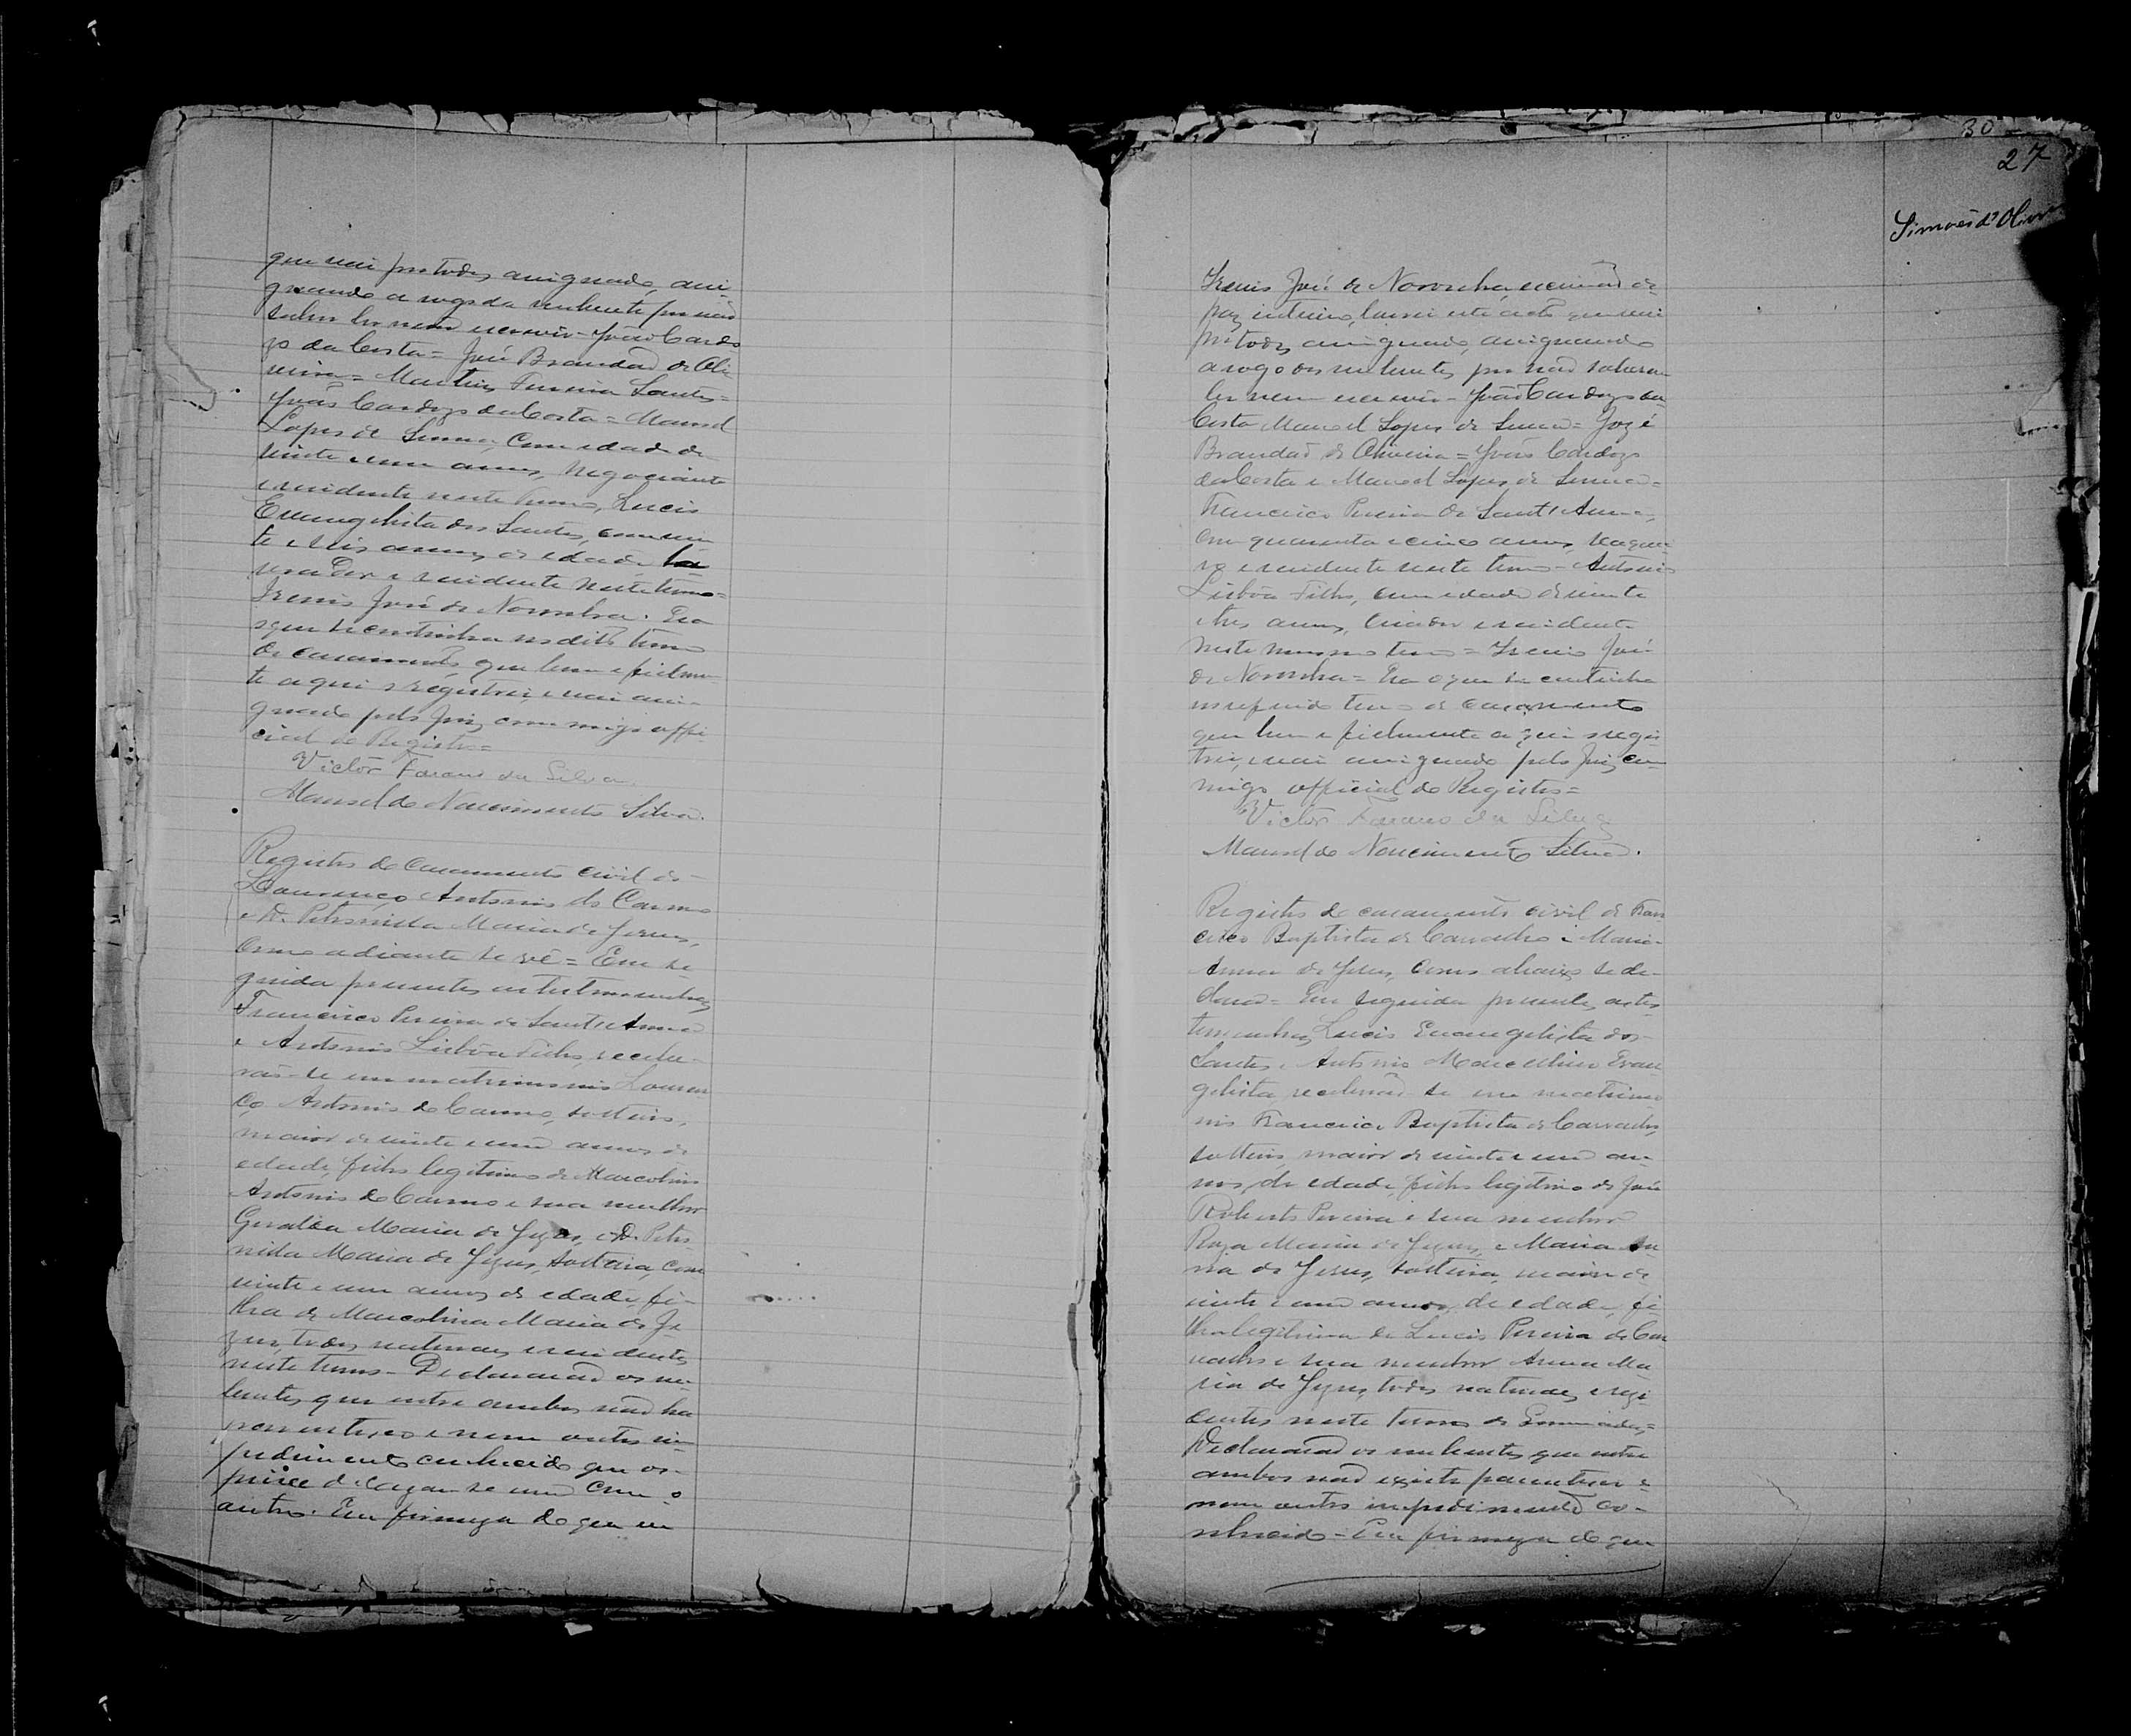 que vai por todos assignado, assi-
gnando a rogo da nubente por não
saber ler nem escrever - João Cardo
zo da Costa = José Brandão de Oli
veira = Martins Ferreira Santos =
João Cardozo da Costa = Manoel
Lopes de Senna, com edade de
vinte e um annos, Negociante
e residente neste termo, Lucio
Evangelista dos Santos, com vin
te e seis annos de edade la
vrador e residente neste termo =
Irenio José de Noronha. Era
o que se continha no dito termo
de casamento, que bem e fielmen
te aqui o registrei, e vai assi-
gnado pelo Juiz commigo offi-
cial do Registro =
Victor da Silva
Manoel do Nascimento Silva.
Registro do casamento civil de
Lourenço Antonio do Carmo
e D. Petronilla Maria de Jesus,
como adiante se vê = Em se
guida presentes as testemunhas
Francisco Pereira de Sant'Anna
e Antonio Lisbôa Filho, recebe-
rão-se em matrimonio Louren
ço Antonio do Carmo, solteiro,
maior de vinte e um annos de
edade, filho legitimo de Marcolino
Antonio do Carmo e sua mulher
Geralda Maria de Jezus, e D. Petro
nilla Maria de Jezus, solteira, com
vinte e um annos de edade, fi-
lha de Marcolina Maria de Je
zus, todos naturaes e residentes
neste termo - Declararão os nu-
bentes que entre ambos não ha
parentesco e nem outro im
pedimento conhecido que os
de cazar-se um com o
outro. Em firmeza do que eu
30
27
Simões d'Oliveira
Irenio José de Noronha, escrivão de
paz interino, lavrei este acto que vai
por todos assignado, assignando
a rogo dos nubentes, por não saberem
ler nem escrever - João Cardozo da
Costa Manoel Lopes de Senna = Jozé
Brandão de Oliveira = João Cardozo
da Costa e Manoel Lopes de Senna =
Francisco Pereira de Sant'Anna,
com quarenta e cinco annos, vaquei
ro e residente neste termo - Antonio
Lisbôa Filho, com edade de vinte
e tres annos, criador e residente
neste mesmo termo = Irenio José
de Noronha = Era o que se continha
no referido termo de casamento
que bem e fielmente aqui o regis
trei, e vai assignado pelo Juiz com
migo official do Registro =
Victor da Silva
Manoel do Nascimento Silva.
Registro do casamento civil de Fran
cisco Baptista de Carvalho e Maria
Anna de Jesus, como abaixo se de-
clara = Em seguida presentes as tes
temunhas Lucio Evangelista dos
Santos e Antonio Marcellino Evan
gelista receberão se em matrimo
nio Francisco Baptista de Carvalho,
solteiro, maior de vinte e um an-
nos, de edade, filho legitimo de José
Roberto Pereira e sua mulher
Roza Maria de Jezus, e Maria An
na de Jesus, solteira, maior de
vinte e um annos, de edade, fi
lha legitima de Lucio Pereira de Car
valho e sua mulher Anna Ma
ria de Jezus, todos naturaes e rezi
dentes neste termo de
Declararão os nubentes que entre
ambos não existe parentesco e
nem outro impedimento co-
nhecido = Em firmeza do que